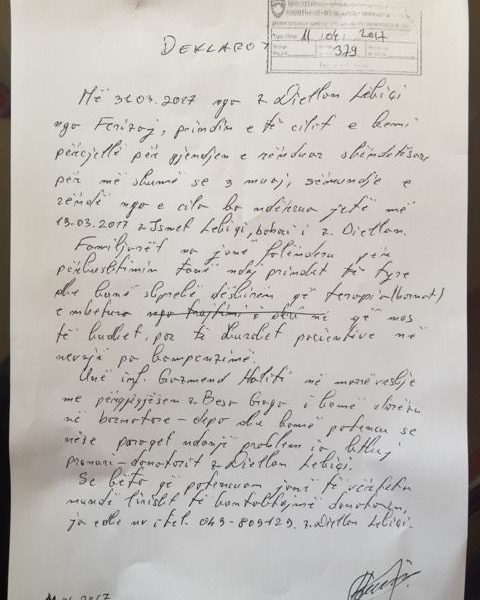 DEKLAROJ
11.04.2017
379
Më 31.03.2017 nga z. Diellon Lebiqi
nga Ferizaj, prindin e të cilit e kemi
përcjellë për gjendjen e rënduar shëndetësore
për më shumë se 3 muaj, sëmundje e
rëndë nga e cila ka ndërruar jetë më
13.03.2017 z. Ismet Lebiqi, babai i z. Diellon.
Familjarët na janë falënderu për
përkushtimin tonë ndaj prindit të tyre
dhe kanë shprehë dëshirën që terapia (barnat)
e mbetura në që mos
të hudhet, por ti dhurohet pacientëve në
nevojë pa kompenzimë.
Unë inf. Gazmend Haliti në marrëveshje
me përgjegjësen z. Besa Gaga i kemë vlerësu
në barnatore – depo dhe kemë potencu se
nëse paraqet ndonjë problem ja kthej
pronari – donatorit z. Diellon Lebiqi.
Se këto që potencuam janë të vërteta
mundë lirisht të kontaktojmë donatorin,
ja edhe nr i tel. 049-809129. z. Diellon Lebiqi.
2017